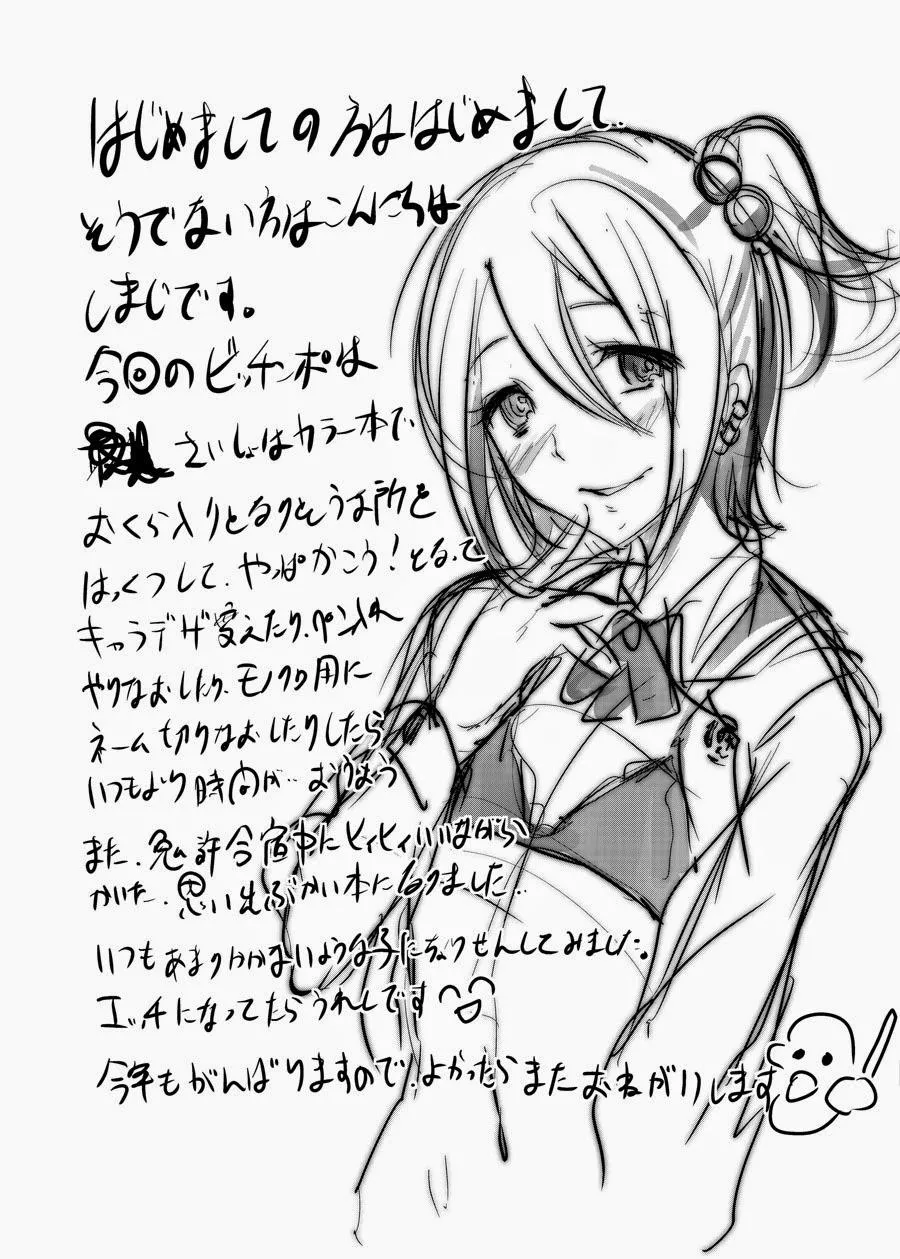 はじめましての方ははじめまして.
そうでない方はこんにちは
しまじです。
今回のビッチンポは
さいしょはカラー本で
おくら入りとなりそうな所を
はっくつして、やっぱかこう!となって
キャラデザ変えたり、ペン入れ
やりなおしたり、モノクロ用に
ネーム切りなおしたりしたら
いつもより時間が‥
また、免許合宿中にヒィヒィいいながら
かいた、思い出ぶかい本になりました‥
いつもあまりかかないような子にちょうせんしてみました。
エッチになってたらうれしです
今年もがんばりますので、よかったらまたおねがいします